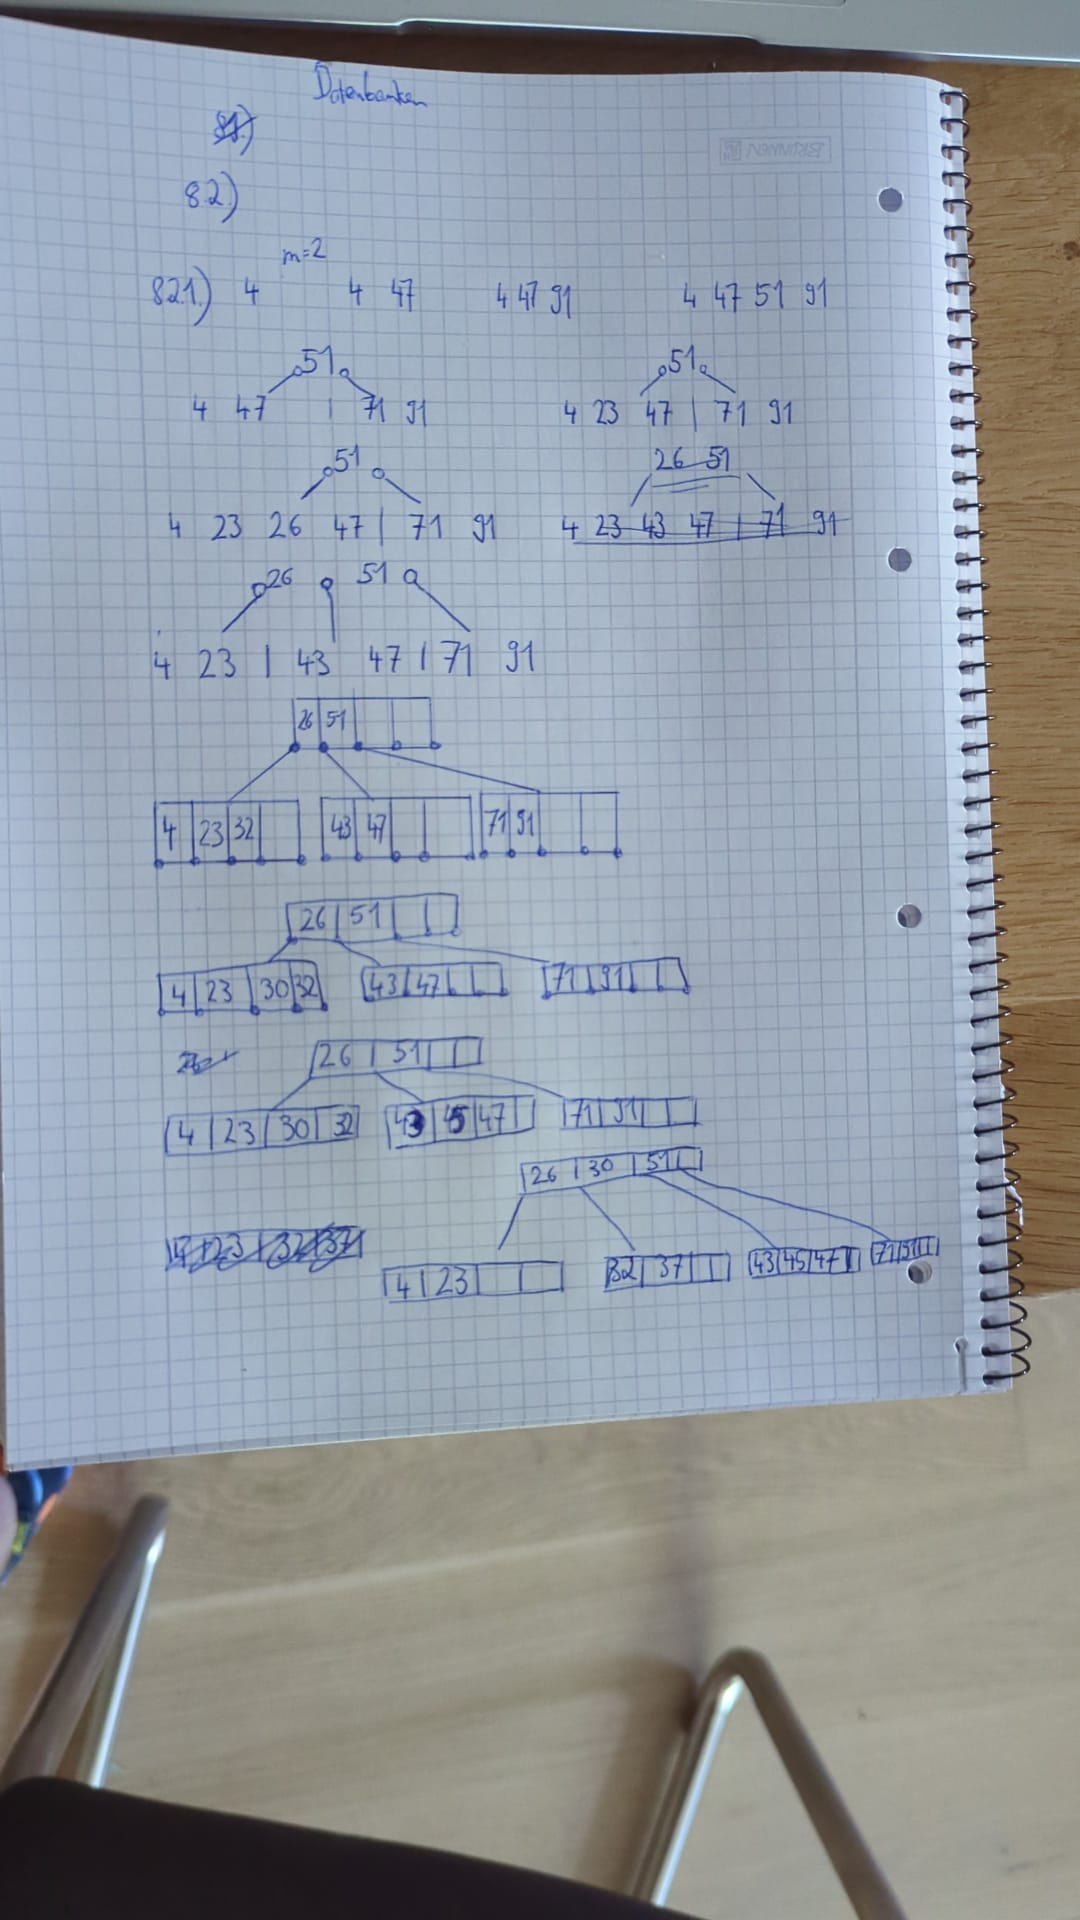 Datenbanken
81.)
82.)
m=2
821.) 4 4 47 4 47 91 4 47 51 91
51 51
4 47 | 71 91 4 23 47 | 71 91
51 26 51
4 23 26 47 | 71 91 4 23 43 47 | 71 91
26 51
4 23 | 43 47 | 71 91
26 51
4 23 32 43 47 71 91
26 51
4 23 30 32 43 47 71 91
26 51
4 23 30 32 43 45 47 71 91
26 30 51
4 23 32 37
4 23 32 37 43 45 47 71 91